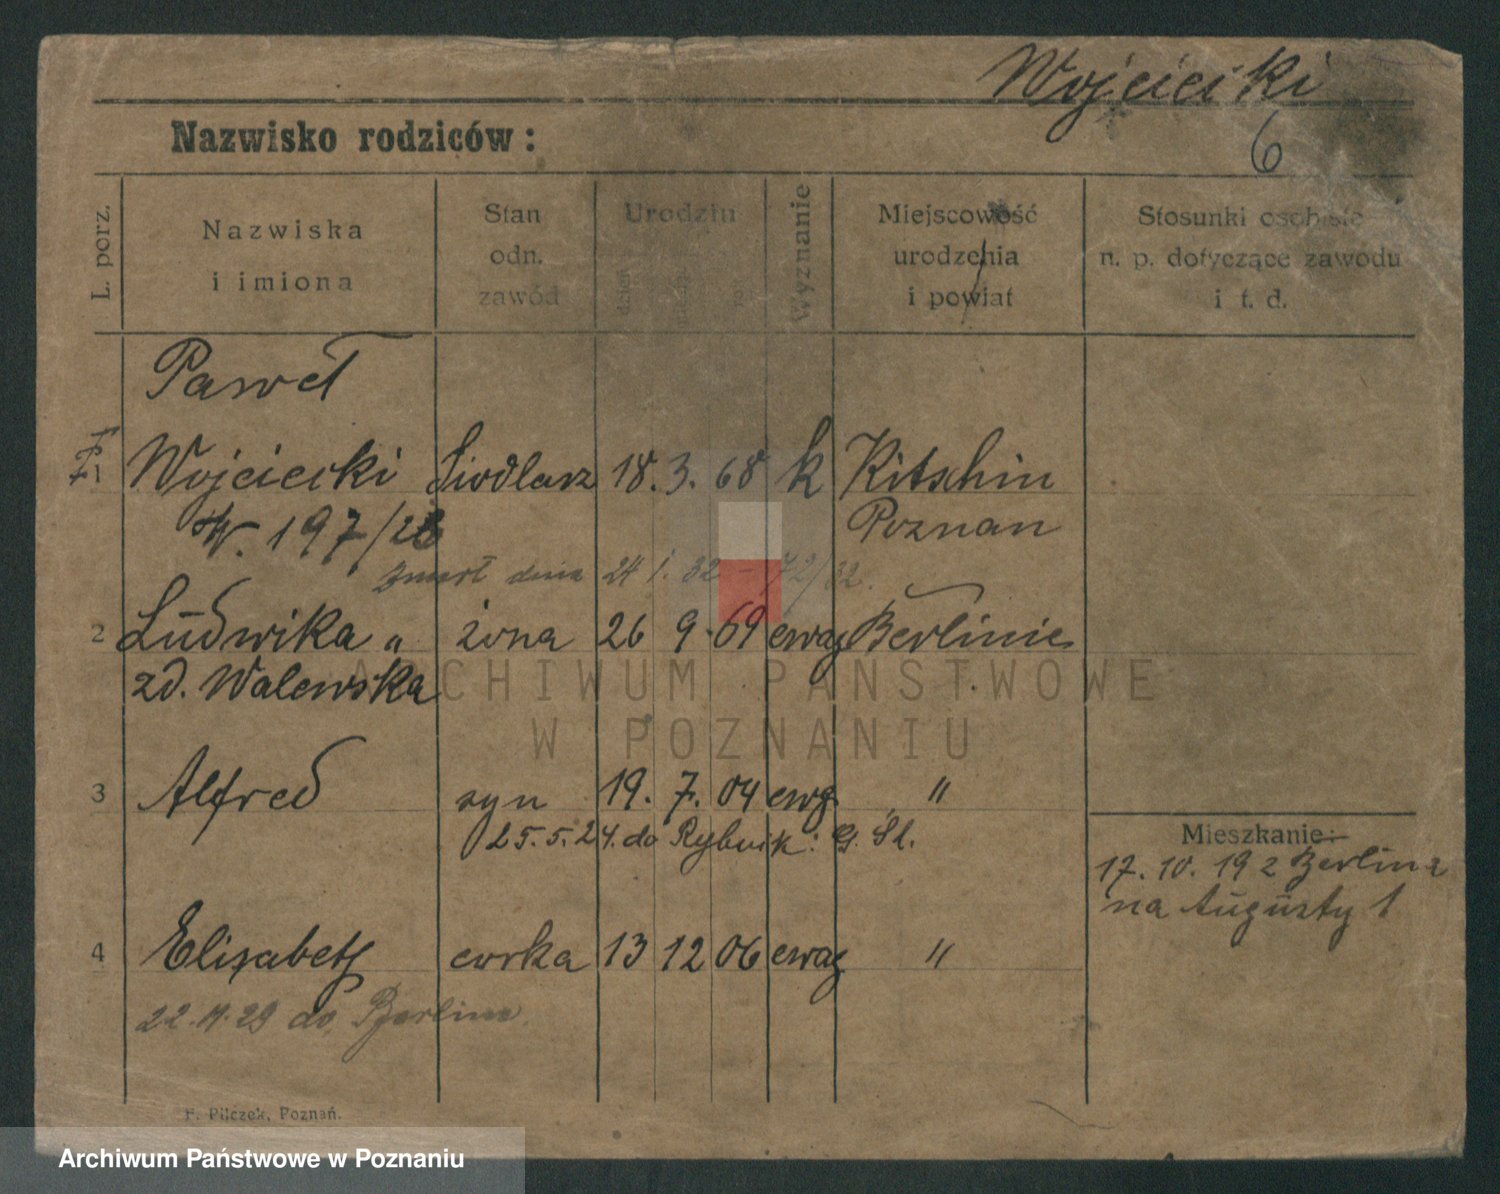 Wojciecki
Nazwisko rodziców:
6
L. porz.
Nazwiska
i imiona
Stan
odn.
zawód
Urodzin
dzień
Wyznanie
Miejscowość
urodzenia
i powiat
Stosunki osobiste
n. p. dotyczące zawodu
i t. d.
Paweł
1 Wojciecki Siodlarz 18. 3. 68 k Kitschin
W. 197/28 Poznan
zmarł dnia 24 1. 32 - 72/32.
2 Ludwika " żona 26 9. 69 ewag Berlinie
zd. Walewska
3 Alfred syn 19. 7. 04 ewg. "
25.5.24. do Rybnik: G. Śl.
Mieszkanie:
17. 10. 19 z Berlina
na Augusty 1
4 Elisabeth corka 13 12 06 ewag "
22.11.29 do Berlina
F. Pilczek, Poznań.
ARCHIWUM PAŃSTWOWE
W POZNANIU
Archiwum Państwowe w Poznaniu